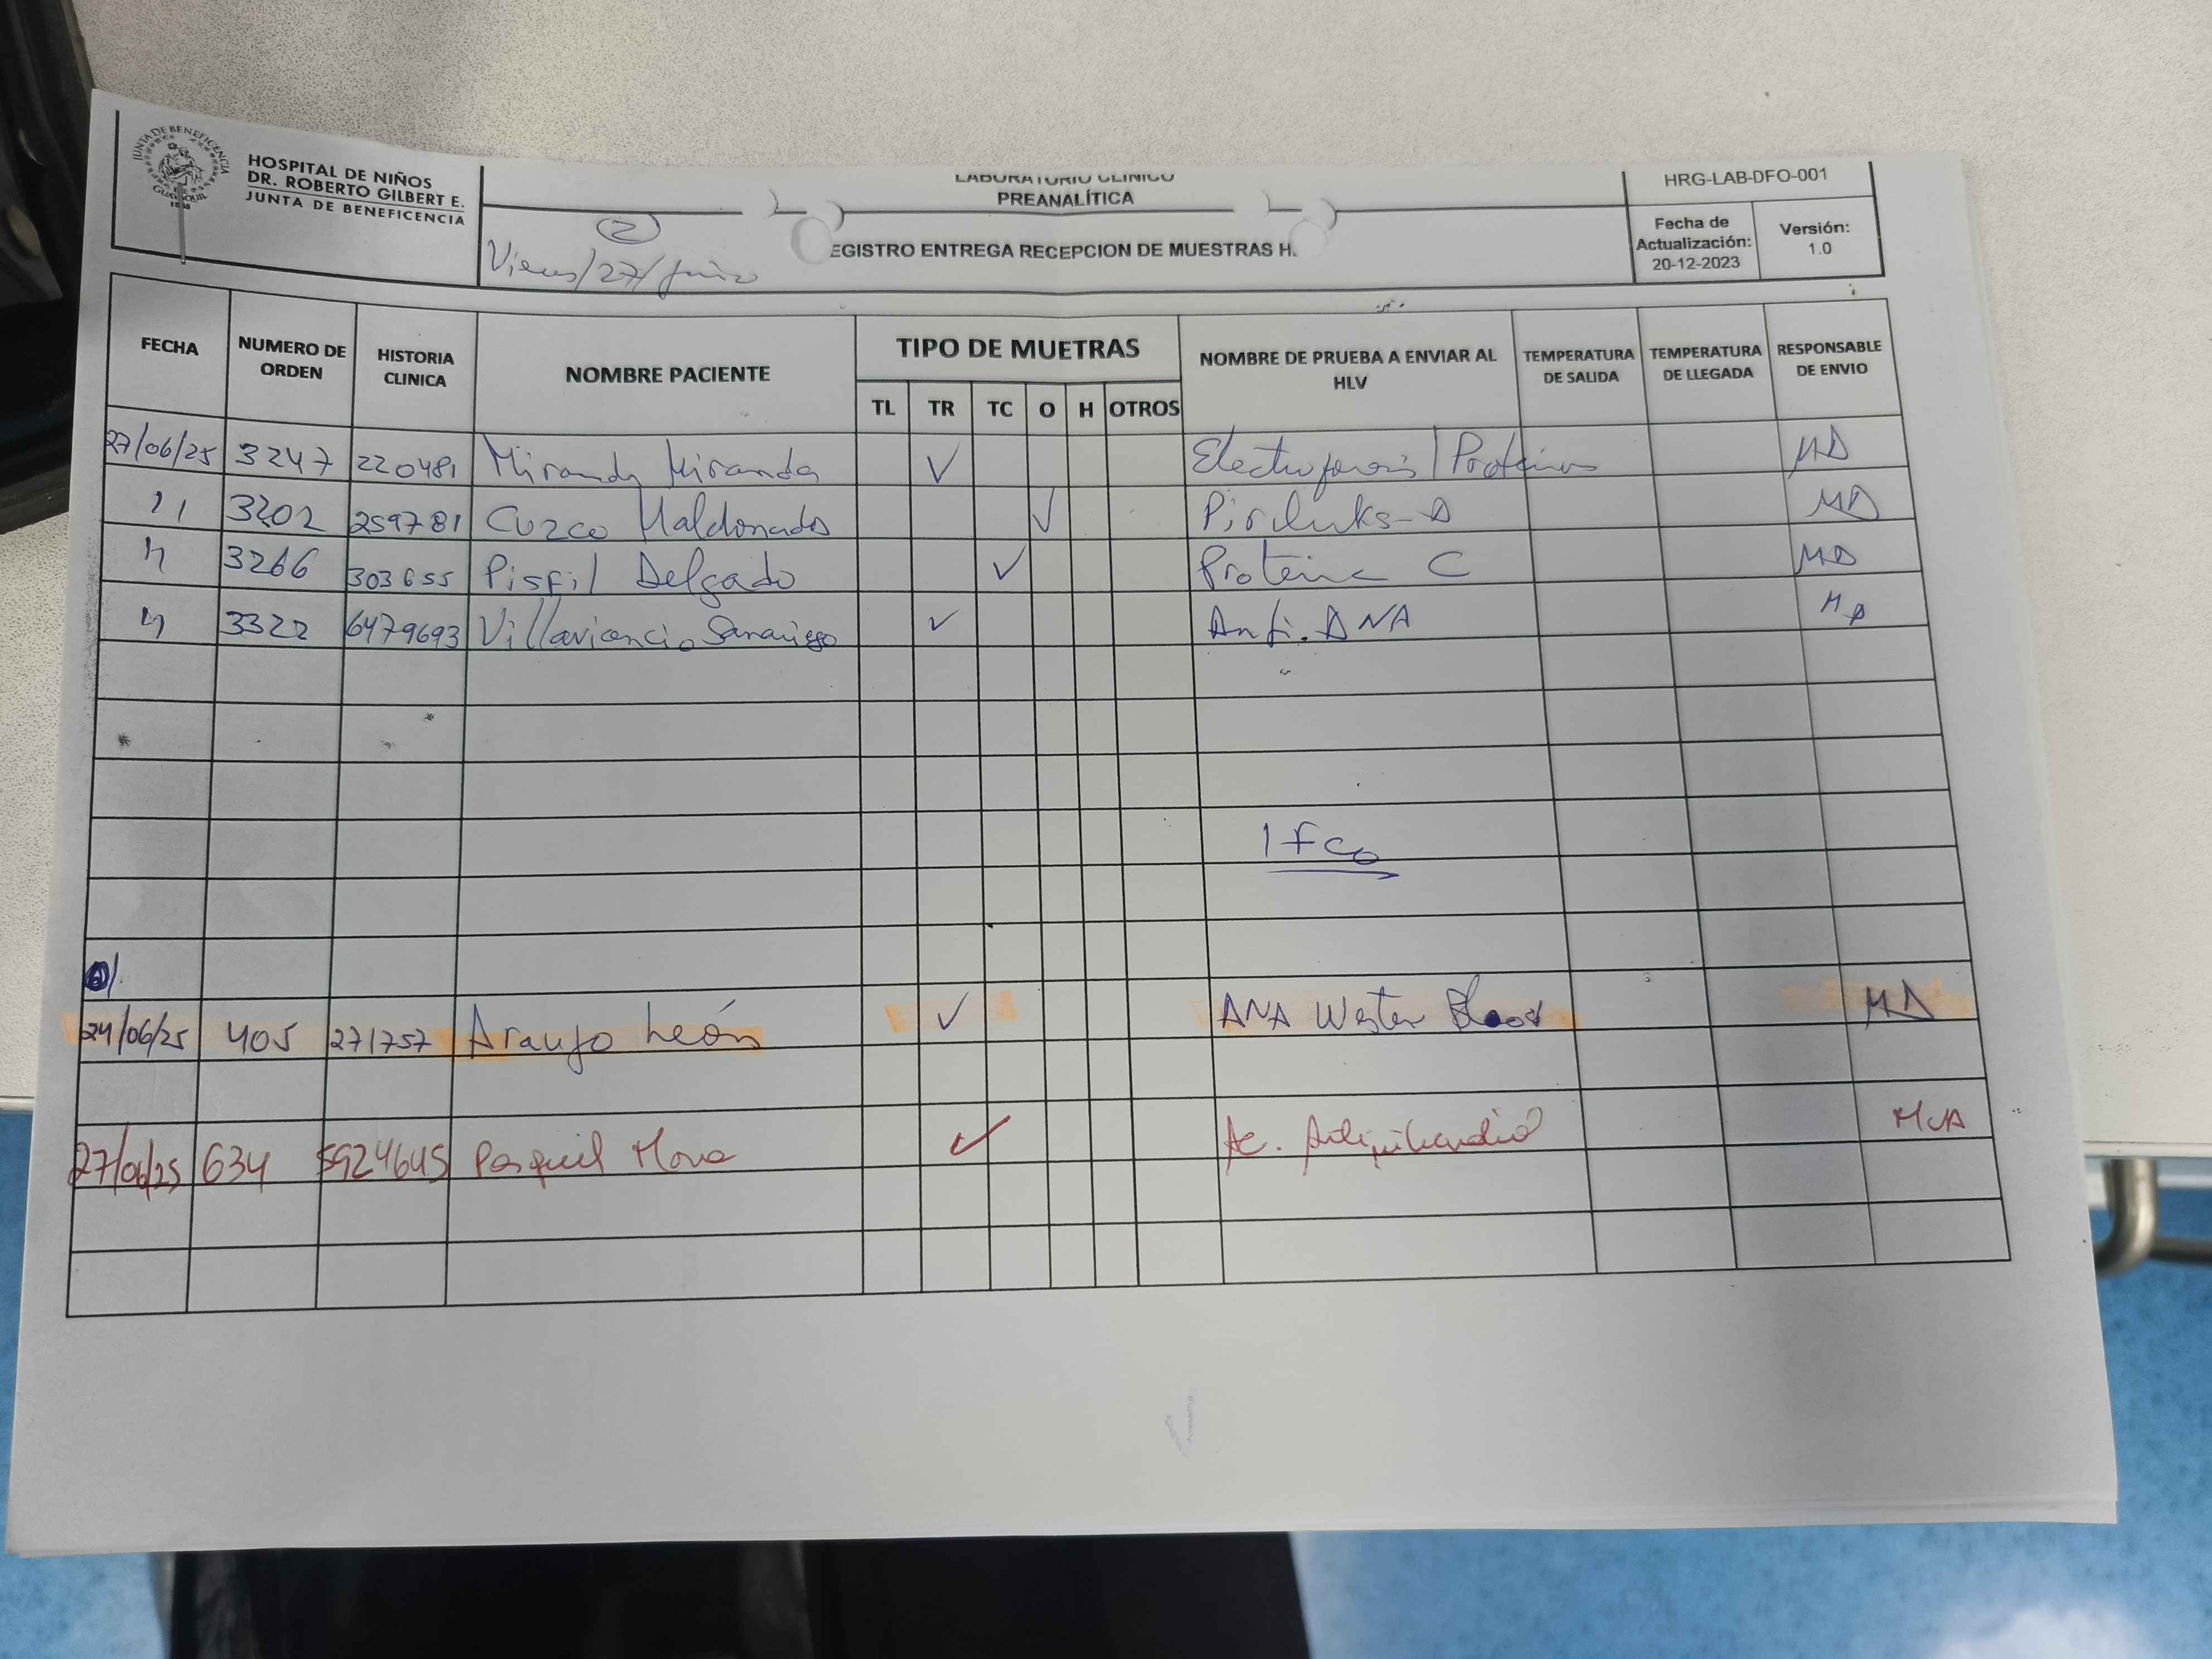 JUNTA DE BENEFICENCIA
GUAYAQUIL
1888
HOSPITAL DE NIÑOS
DR. ROBERTO GILBERT E.
JUNTA DE BENEFICENCIA
LABORATORIO CLINICO
PREANALÍTICA
2
Viernes/27/Junio
EGISTRO ENTREGA RECEPCION DE MUESTRAS H.
HRG-LAB-DFO-001
Fecha de Actualización: 20-12-2023
Versión: 1.0
FECHA NUMERO DE ORDEN HISTORIA CLINICA NOMBRE PACIENTE TIPO DE MUETRAS NOMBRE DE PRUEBA A ENVIAR AL HLV TEMPERATURA DE SALIDA TEMPERATURA DE LLEGADA RESPONSABLE DE ENVIO
TL TR TC O H OTROS
27/06/25 3247 220481 Miranda Miranda ✓ Electroforesis/Proteinas MD
11 3202 259781 Cuzco Maldonado ✓ MD
4 3266 303655 Pisfil Delgado ✓ Proteina C MD
4 3322 6479693 Villavicencio ✓ Anti. DNA MD
1 Fco
24/06/25 405 271757 Araujo León ✓ ANA Wester MD
27/06/25 634 5924645 ✓ Ac. MJA